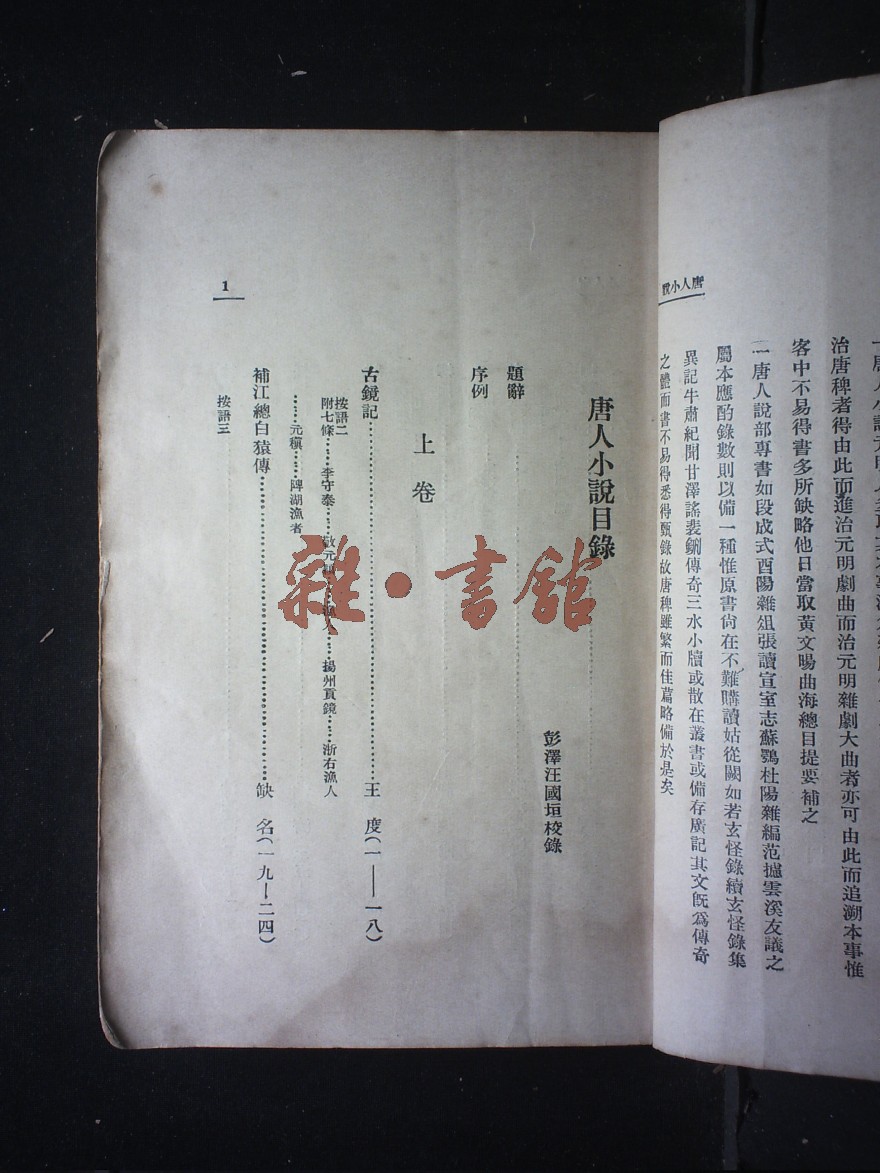 唐人小說
唐人小說元明人
治唐稗者得由此而進治元明劇曲而治元明雜劇大曲者亦可由此而追溯本事惟
客中不易得書多所缺略他日當取黃文暘曲海總目提要補之
一唐人說部專書如段成式酉陽雜俎張讀宣室志蘇鶚杜陽雜編范攄雲溪友議之
屬本應酌錄數則以備一種惟原書尙在不難購讀姑從闕如若玄怪錄續玄怪錄集
異記牛肅紀聞甘澤謠裴鉶傳奇三水小牘或散在叢書或備存廣記其文旣爲傳奇
之體而書不易得悉得甄錄故唐稗雖繁而佳篇略備於是矣
唐人小說目錄
彭澤汪國垣校錄
題辭
序例
上卷
古鏡記……王　度(一——一八)
按語二
附七條……李守泰……敬元穎……人……揚州貢鏡……浙右漁人
……元稹……陴湖漁者
補江總白猿傳……缺　名(一九—二四)
按語三
1
雜·書館